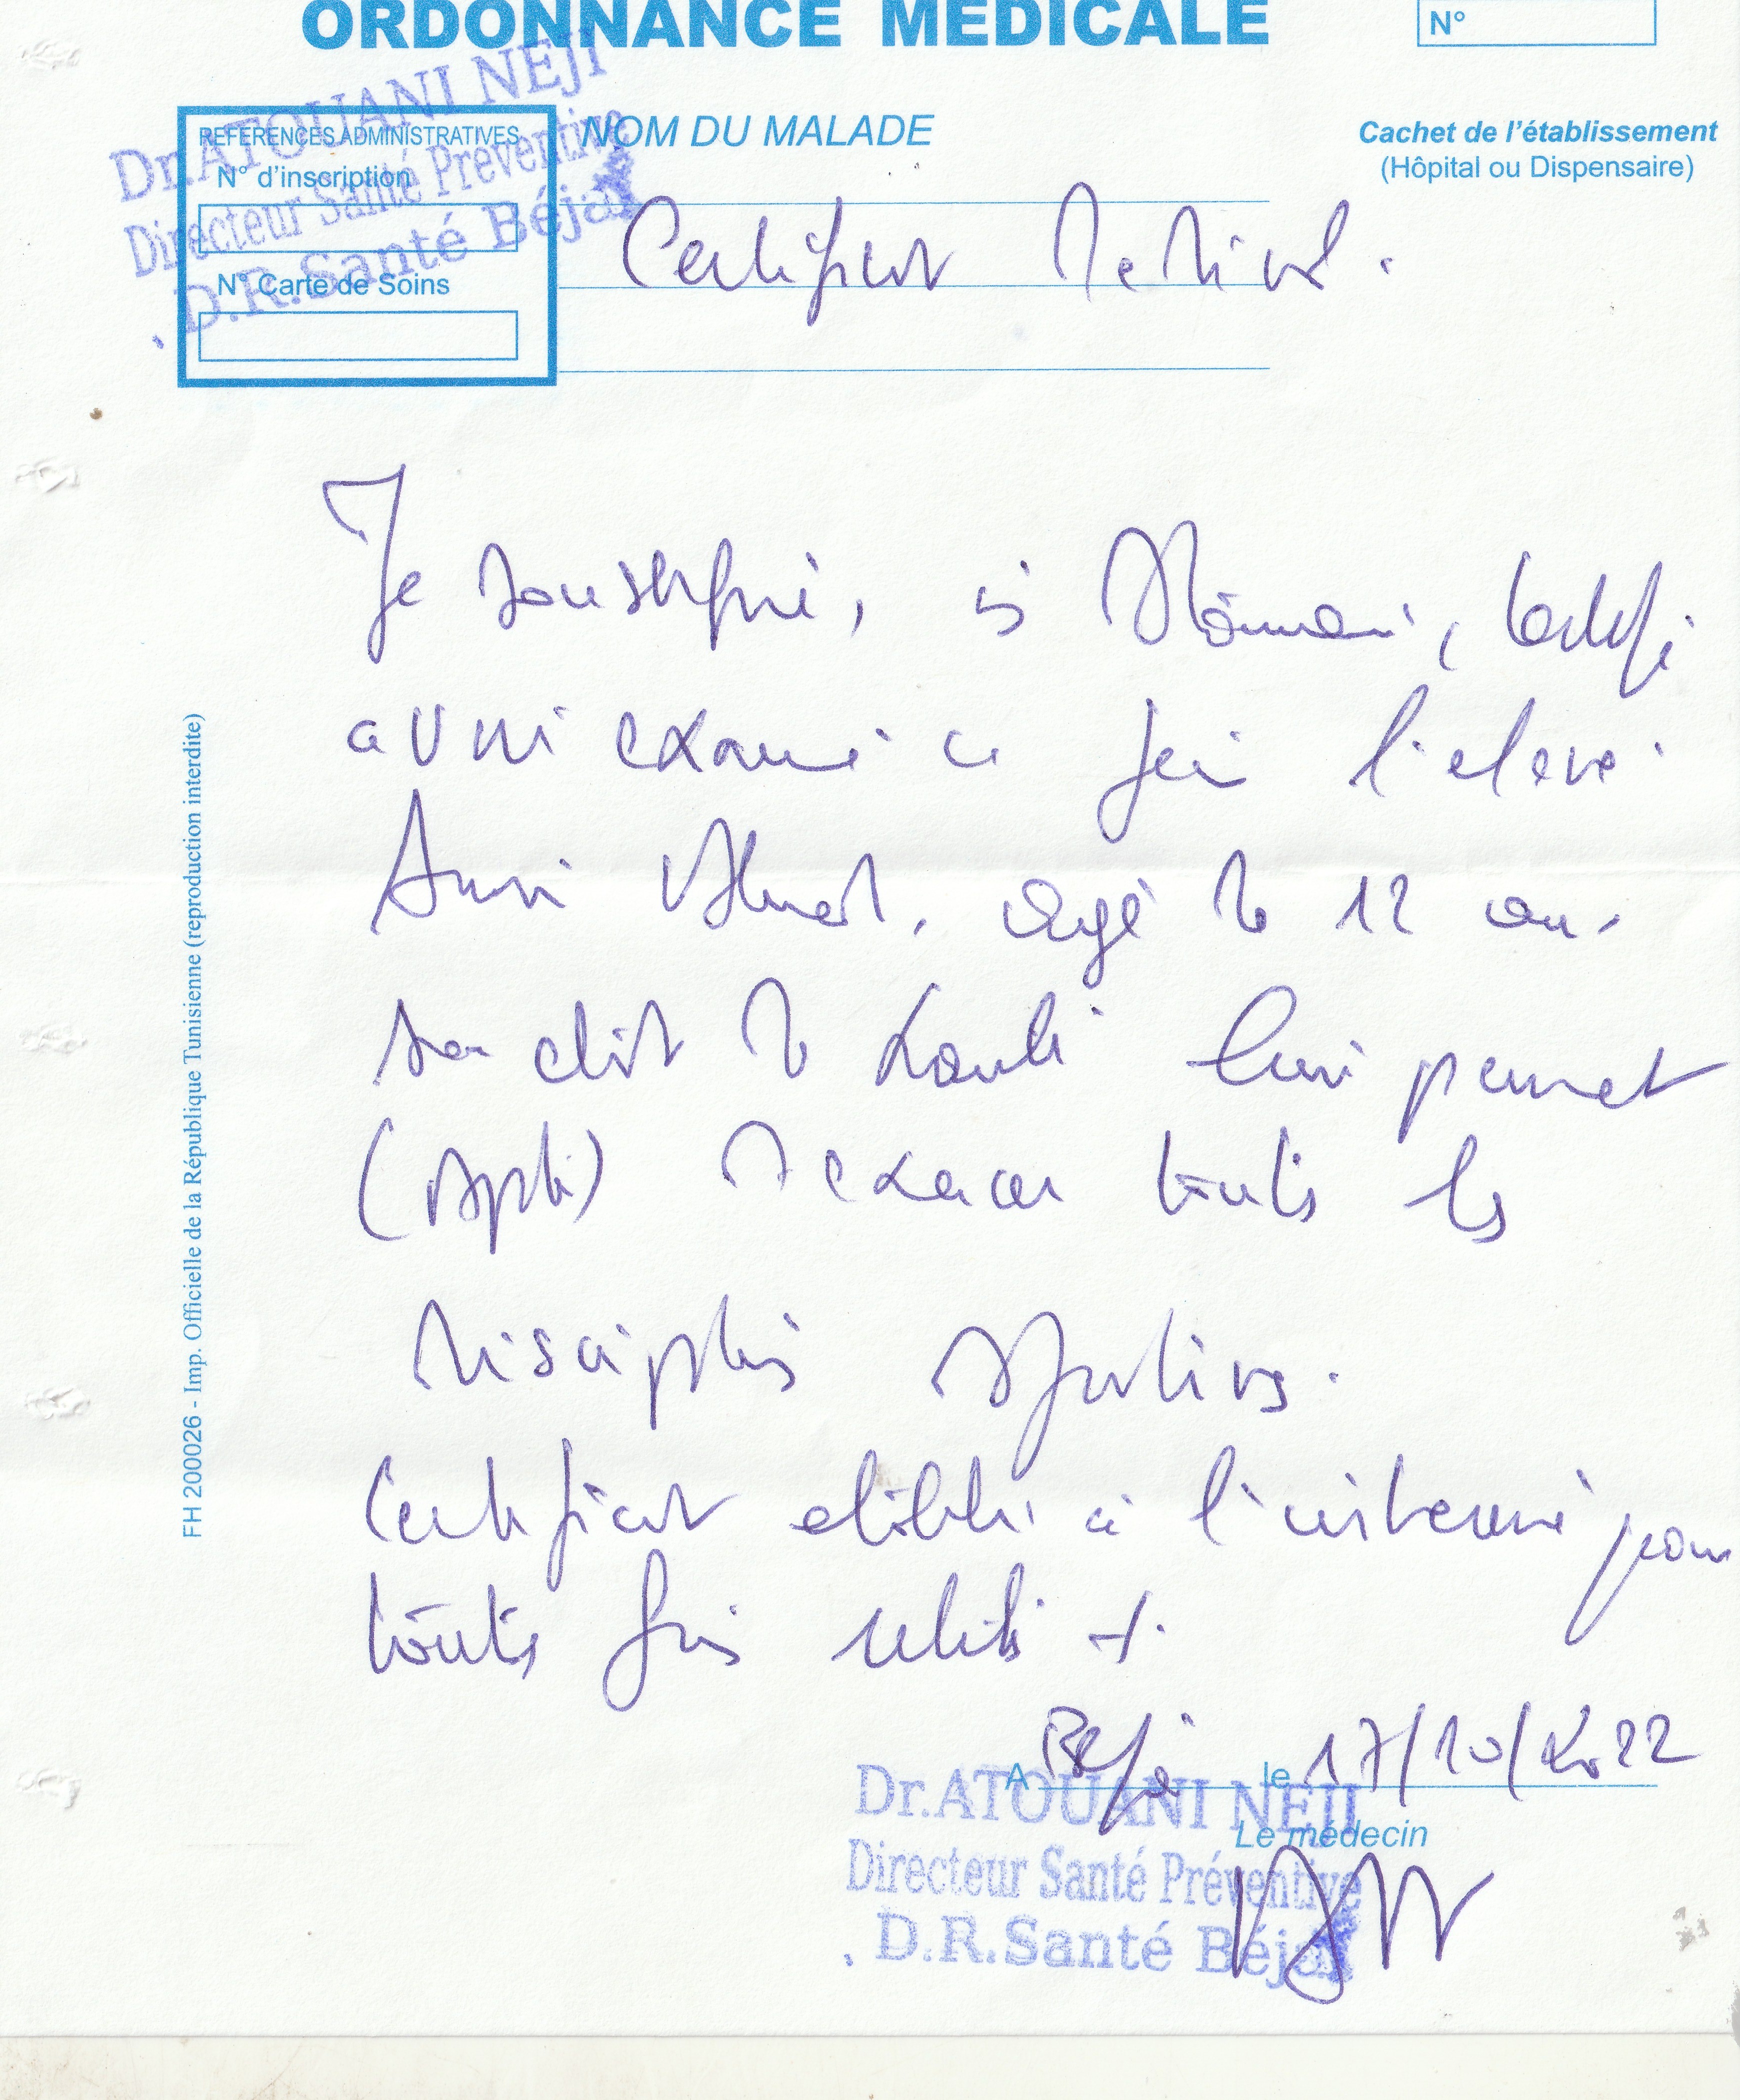 ORDONNANCE MEDICALE
N°
Dr.ATOUANI NEJI
Directeur Santé Préventive
D.R.Santé Béja
REFERENCES ADMINISTRATIVES
N° d'inscription
N° Carte de Soins
NOM DU MALADE
Cachet de l'établissement
(Hôpital ou Dispensaire)
Certificat Medical.
Je soussigné, certifi
avoir examiné ce jour l'eleve
Ahmed. agé de 12 ans
son etat de santé lui permet
(Apte) d'exercer toutes les
disciplines sportives.
Certificat etabli à l'interessé pour
toutes fins utiles
A Beja le 17/10/2022
Le médecin
Dr.ATOUANI NEJI
Directeur Santé Préventive
D.R.Santé Béja
FH 200026 - Imp. Officielle de la République Tunisienne (reproduction interdite)